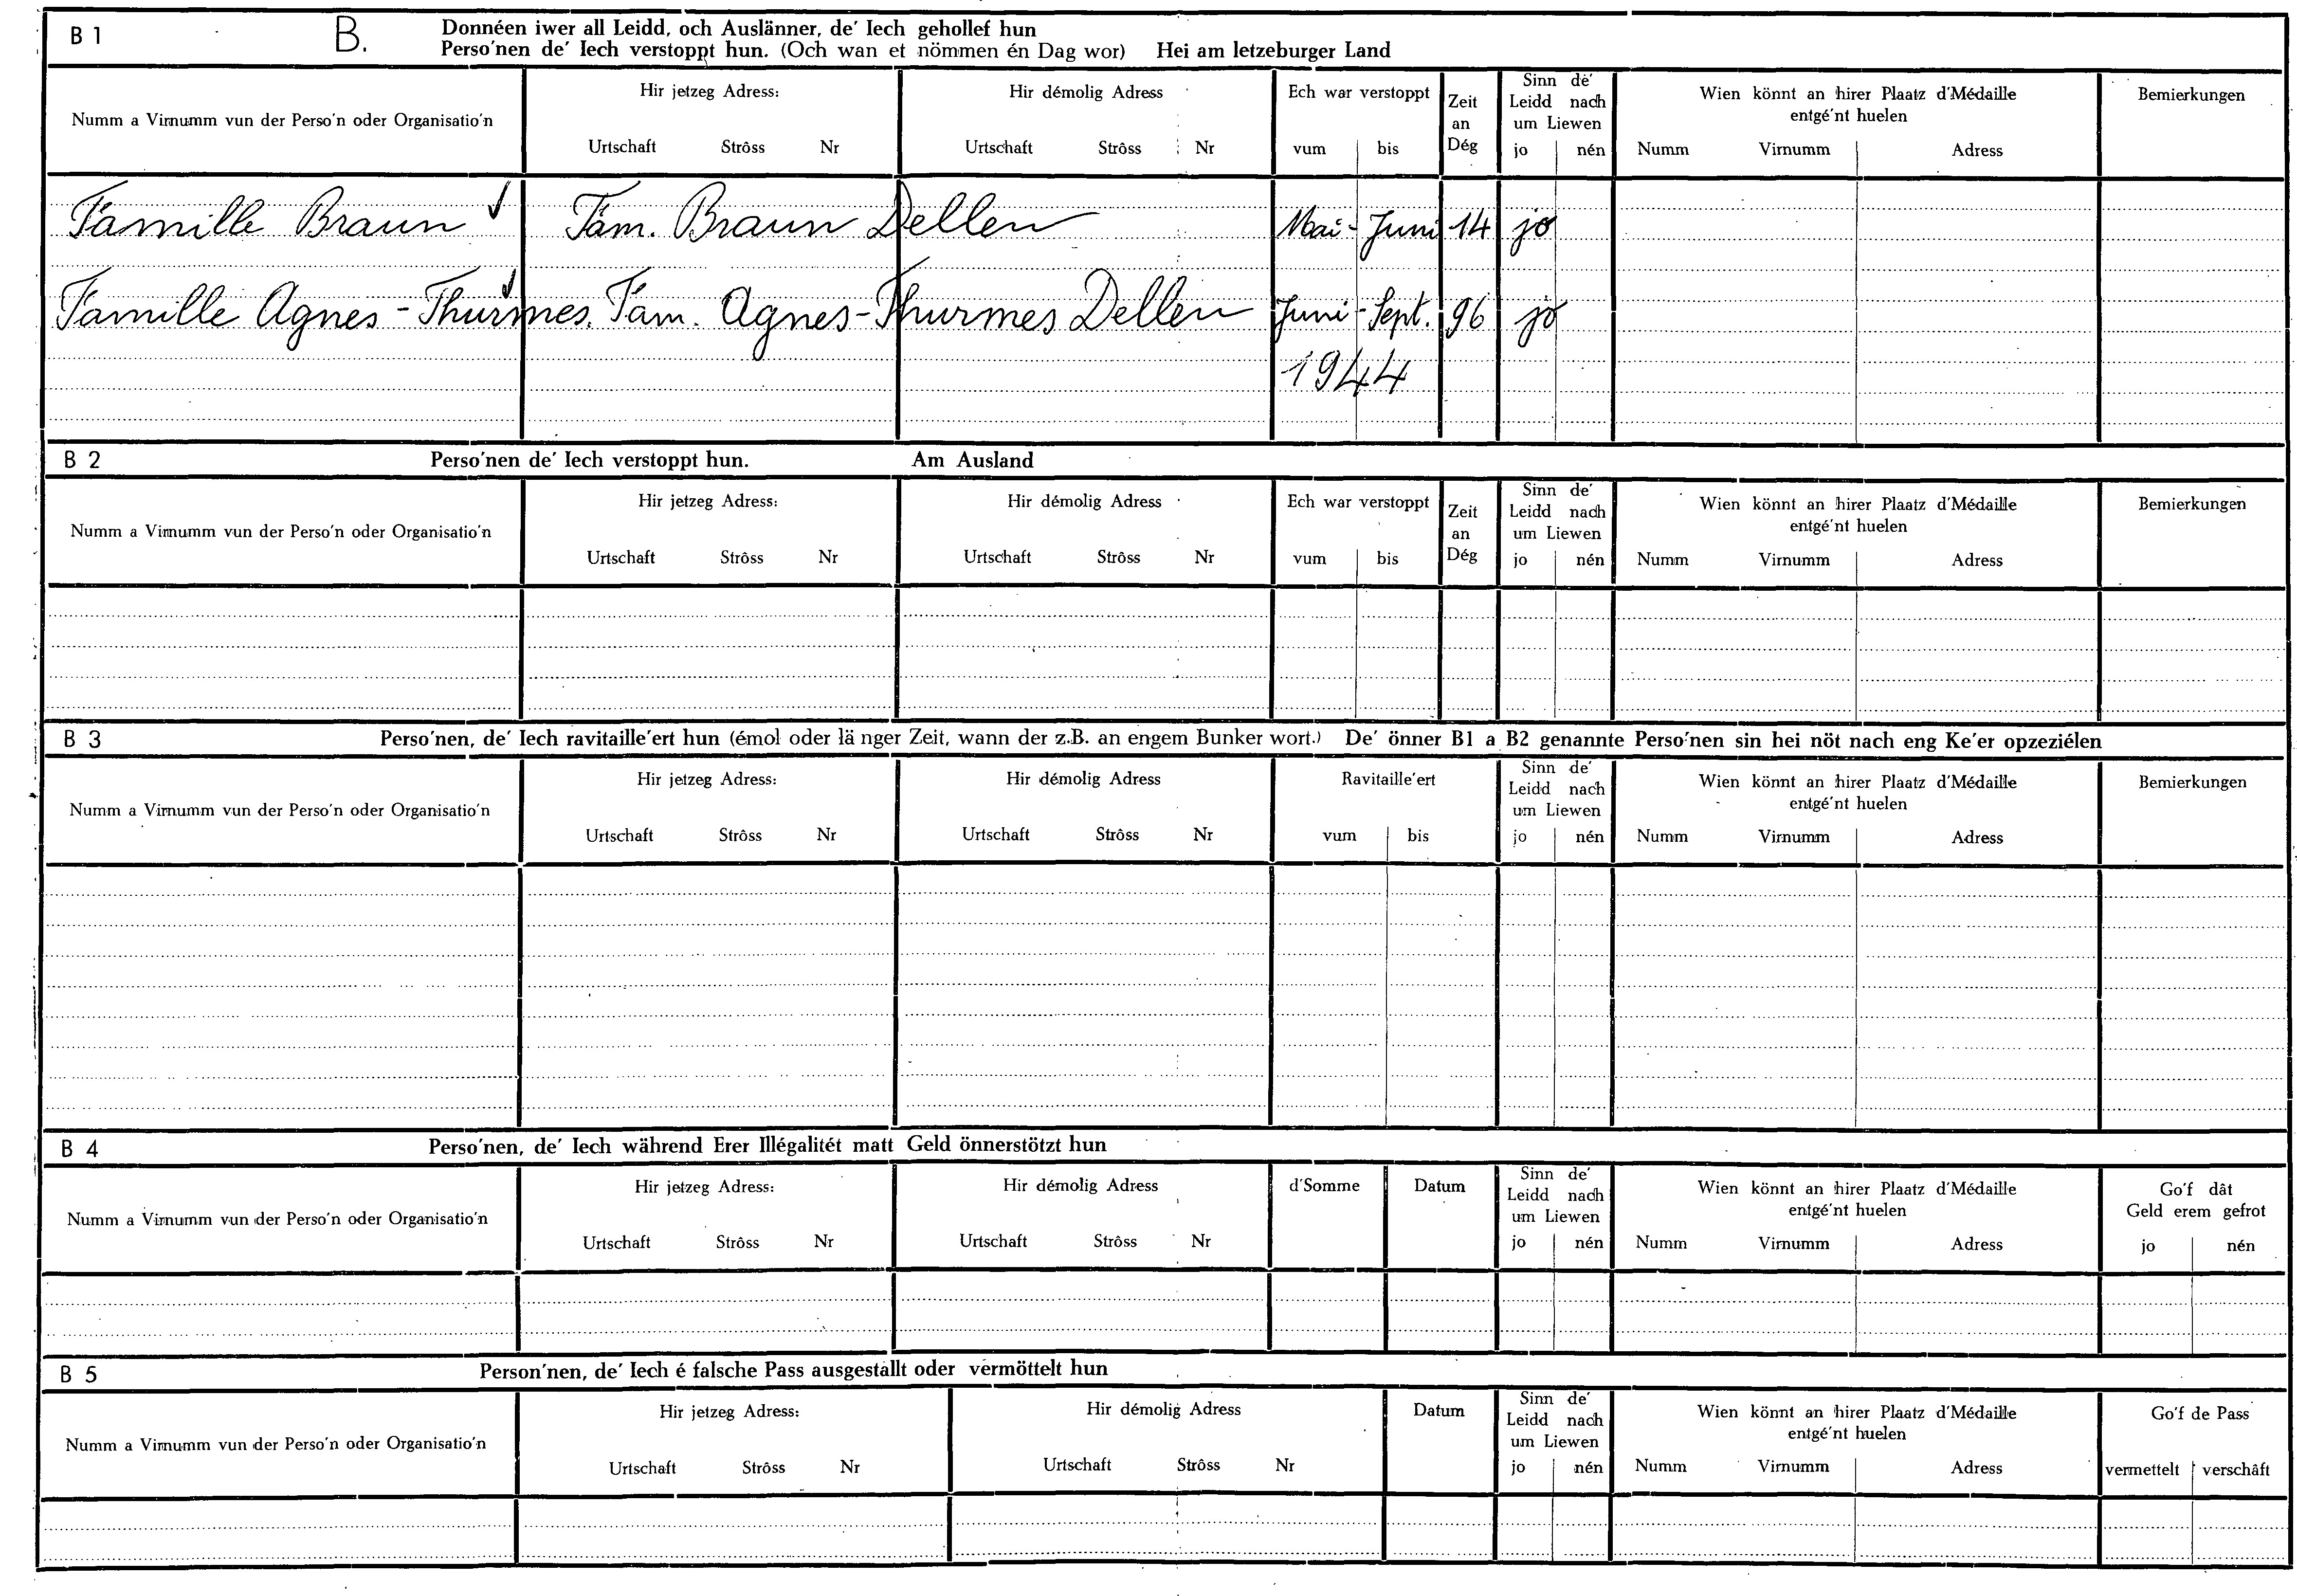 B 1 B. Donnéen iwer all Leidd, och Auslänner, de' Iech gehollef hun
Perso'nen de' Iech verstoppt hun. (Och wan et nömmen én Dag wor) Hei am letzeburger Land
Numm a Virnumm vun der Perso'n oder Organisatio'n
Hir jetzeg Adress:
Urtschaft Ströss Nr
Hir démolig Adress
Urtschaft Ströss Nr
Ech war verstoppt
vum bis
Zeit
an
Dég
Sinn de'
Leidd nach
um Liewen
jo nén
Wien könnt an hirer Plaatz d'Médaille
entgé'nt huelen
Numm Virnumm Adress
Bemierkungen
Famille Braun ✓ Fam. Braun Dellen Mai - Juni 14 jo
Famille Agnes - Thurmes. Fam. Agnes - Thurmes Dellen Juni - Sept. 96 jo
1944
B 2 Perso'nen de' Iech verstoppt hun. Am Ausland
Numm a Virnumm vun der Perso'n oder Organisatio'n
Hir jetzeg Adress:
Urtschaft Strôss Nr
Hir démolig Adress
Urtschaft Strôss Nr
Ech war verstoppt
vum bis
Zeit
an
Dég
Sinn de'
Leidd nach
um Liewen
jo nén
Wien könnt an hirer Plaatz d'Médaille
entgé'nt huelen
Numm Virnumm Adress
Bemierkungen
B 3 Perso'nen, de' Iech ravitaille'ert hun (émol oder länger Zeit, wann der z.B. an engem Bunker wort.) De' önner B1 a B2 genannte Perso'nen sin hei nöt nach eng Ke'er opzeziélen
Numm a Virnumm vun der Perso'n oder Organisatio'n
Hir jetzeg Adress:
Urtschaft Strôss Nr
Hir démolig Adress
Urtschaft Strôss Nr
Ravitaille'ert
vum bis
Sinn de'
Leidd nach
um Liewen
jo nén
Wien könnt an hirer Plaatz d'Médaille
entgé'nt huelen
Numm Virnumm Adress
Bemierkungen
B 4 Perso'nen, de' Iech während Erer Illégalitét matt Geld önnerstötzt hun
Numm a Virnumm vun der Perso'n oder Organisatio'n
Hir jetzeg Adress:
Urtschaft Strôss Nr
Hir démolig Adress
Urtschaft Strôss Nr
d'Somme
Datum
Sinn de'
Leidd nach
um Liewen
jo nén
Wien könnt an hirer Plaatz d'Médaille
entgé'nt huelen
Numm Virnumm Adress
Go'f dât
Geld erem gefrot
jo nén
B 5 Person'nen, de' Iech é falsche Pass ausgestallt oder vermöttelt hun
Numm a Virnumm vun der Perso'n oder Organisatio'n
Hir jetzeg Adress:
Urtschaft Strôss Nr
Hir démolig Adress
Urtschaft Strôss Nr
Datum
Sinn de'
Leidd nach
um Liewen
jo nén
Wien könnt an hirer Plaatz d'Médaille
entgé'nt huelen
Numm Virnumm Adress
Go'f de Pass
vermettelt verschâft